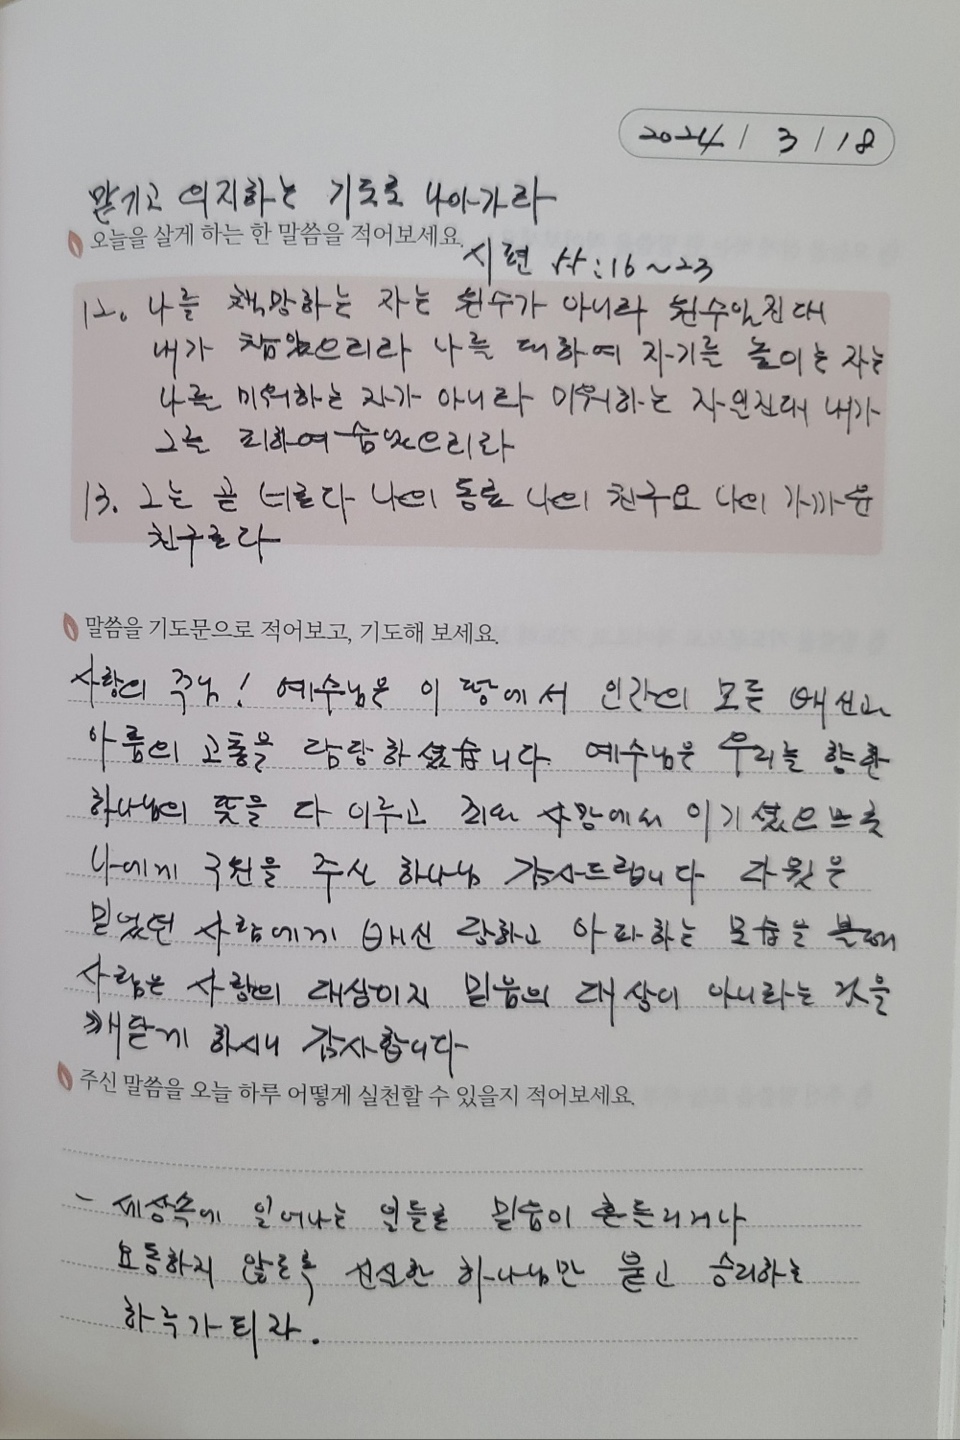 2024 / 3 / 18
맡기고 의지하는 기도로 나아가라
오늘을 살게 하는 한 말씀을 적어보세요.
시편 55:16~23
12. 나를 책망하는 자는 원수가 아니라 원수일진대
내가 참았으리라 나를 대하여 자기를 높이는 자는
나를 미워하는 자가 아니라 미워하는 자인진대 내가
그를 피하여 숨었으리라
13. 그는 곧 너로다 나의 동료 나의 친구요 나의 가까운
친구로다
말씀을 기도문으로 적어보고, 기도해 보세요.
사랑의 주님! 예수님은 이 땅에서 인간의 모든 배신과
아픔의 고통을 담당하셨습니다. 예수님은 우리를 향한
하나님의 뜻을 다 이루고 죄와 사망에서 이기셨으므로
나에게 구원을 주신 하나님 감사드립니다 다윗은
믿었던 사람에게 배신 당하고 아파하는 모습을 통해
사람은 사랑의 대상이지 믿음의 대상이 아니라는 것을
깨닫게 하시니 감사합니다
주신 말씀을 오늘 하루 어떻게 실천할 수 있을지 적어보세요.
- 세상속에 일어나는 일들로 믿음이 흔들리거나
요동하지 않도록 신실한 하나님만 붙고 승리하는
하루가 되라.